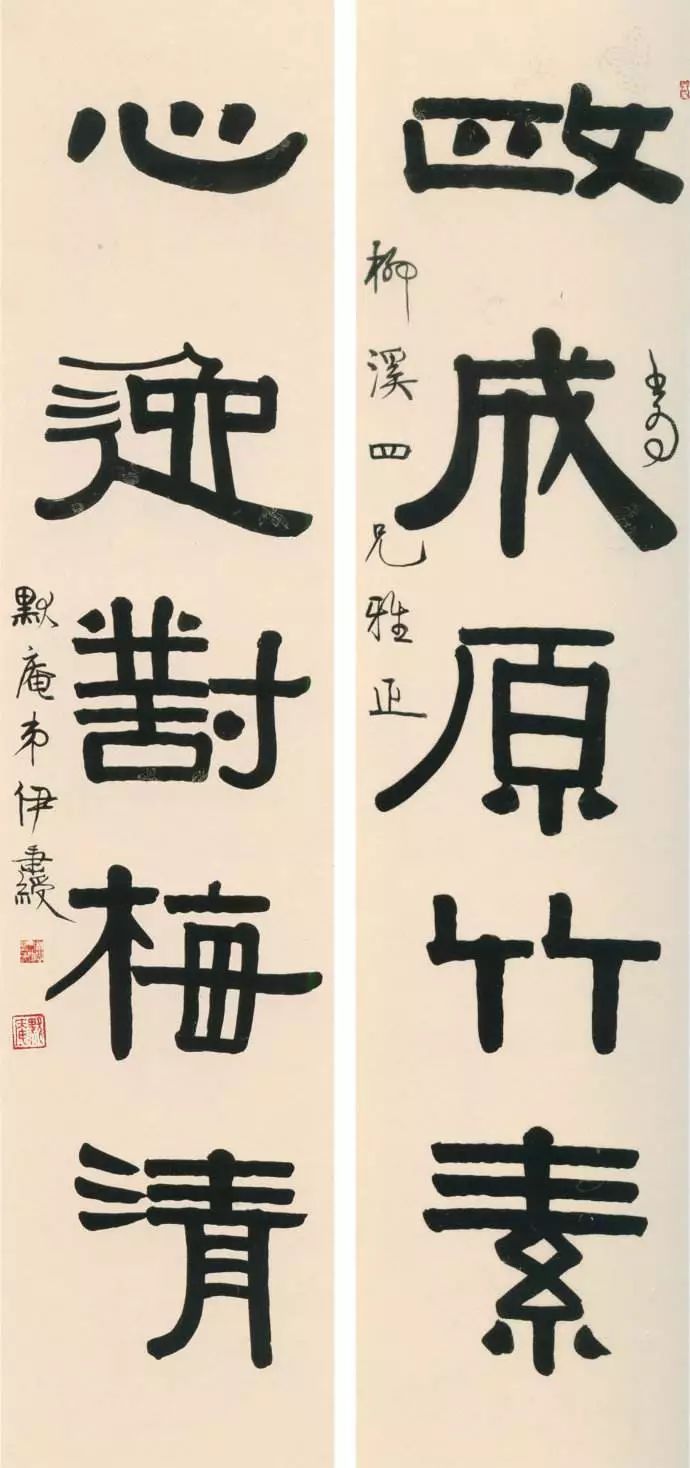 政成原竹素
柳溪四兄雅正
心逸對梅清
默庵弟伊秉綬
默庵